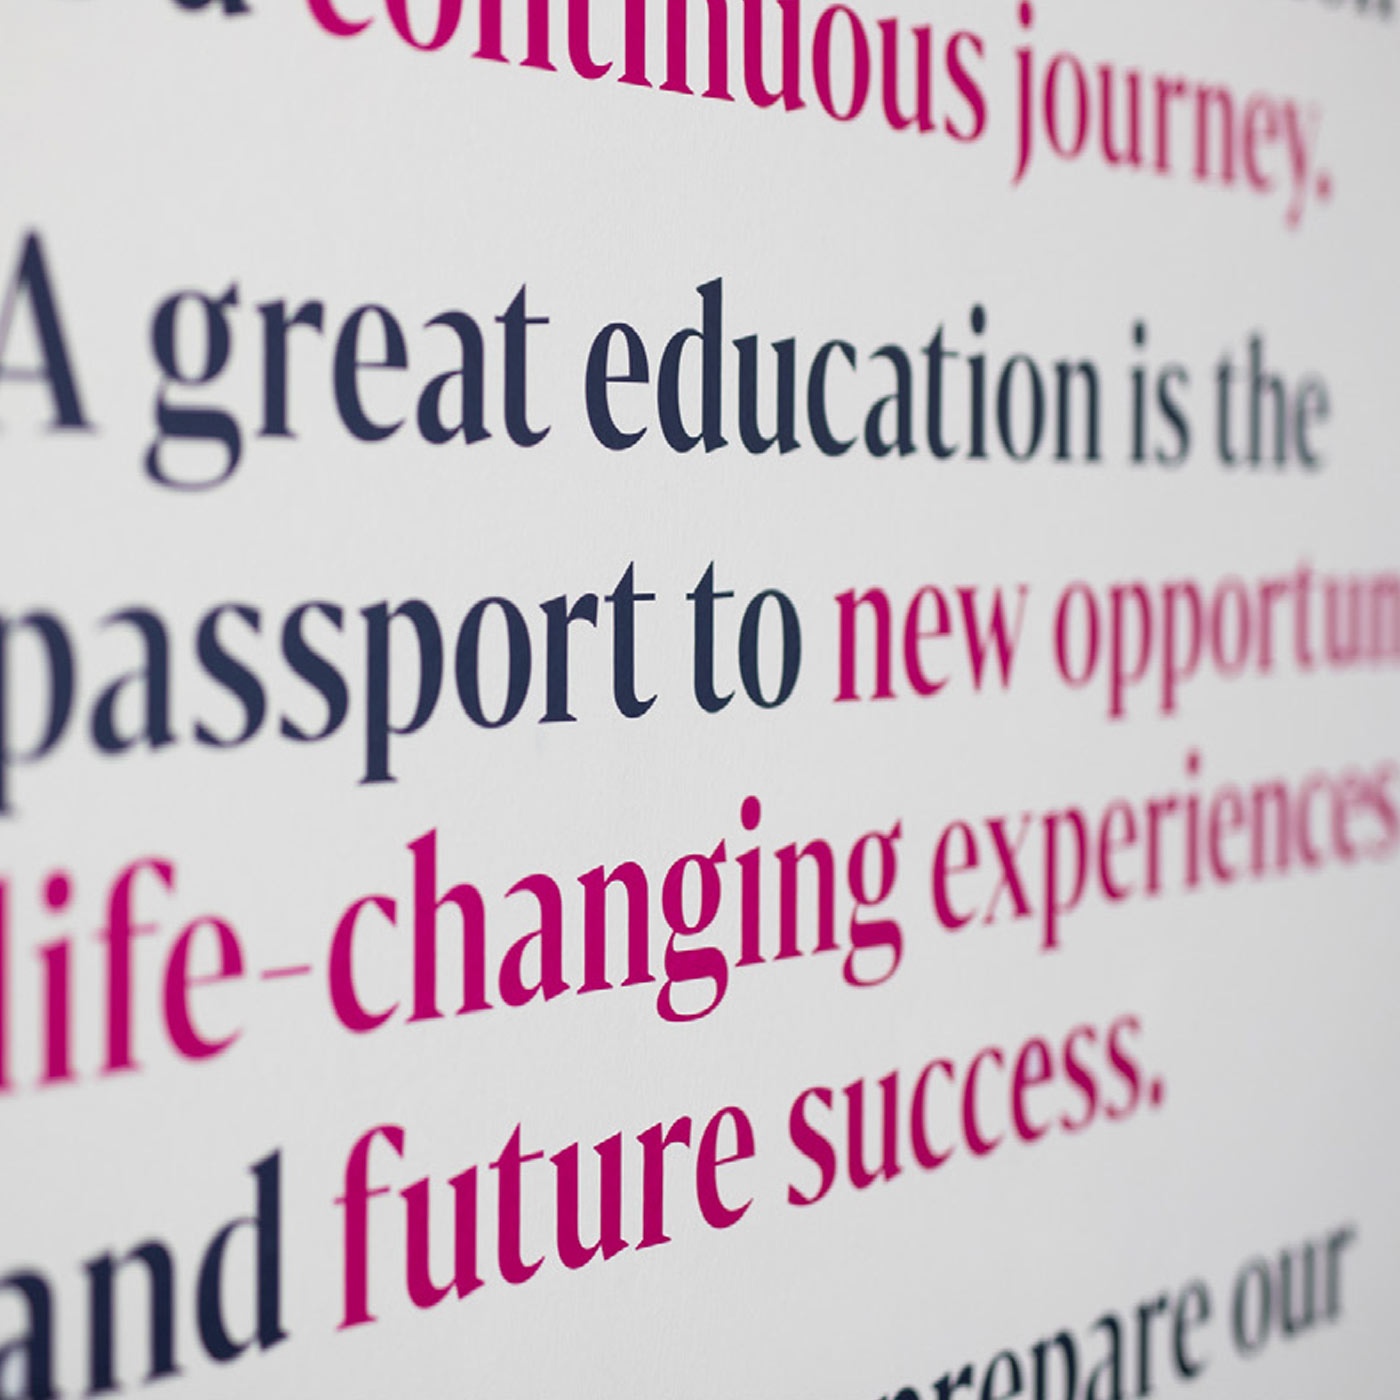 a continuous journey.
A great education is the
passport to new opportun
life-changing experiences
and future success.
prepare our